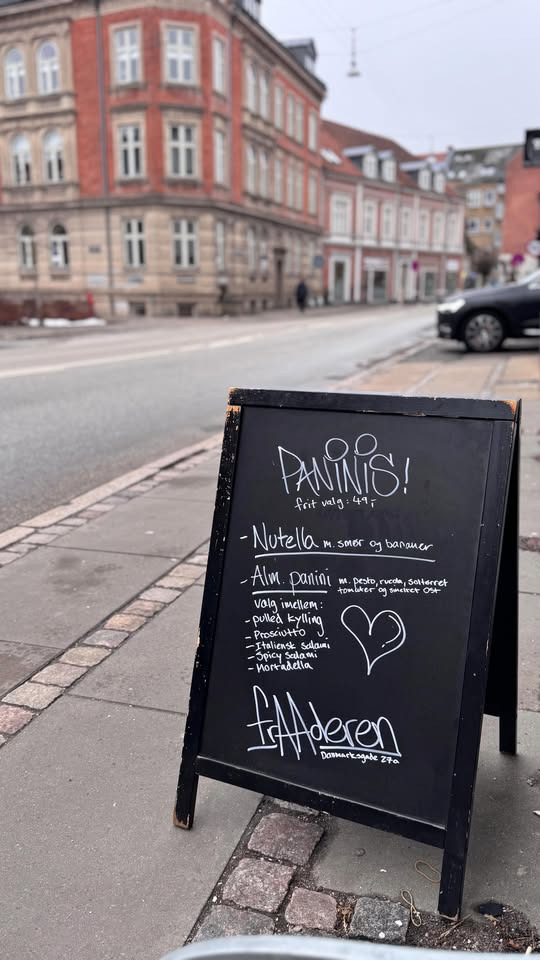 PANINIS!
frit valg : 49,-
- Nutella m. smør og bananer
- Alm. panini m. pesto, rucola, soltørret
tomater og smeltet ost
valg imellem :
- pulled kylling
- Prosciutto
- Italiensk salami
- Spicy salami
- Mortadella
frAAderen
Danmarksgade 27a